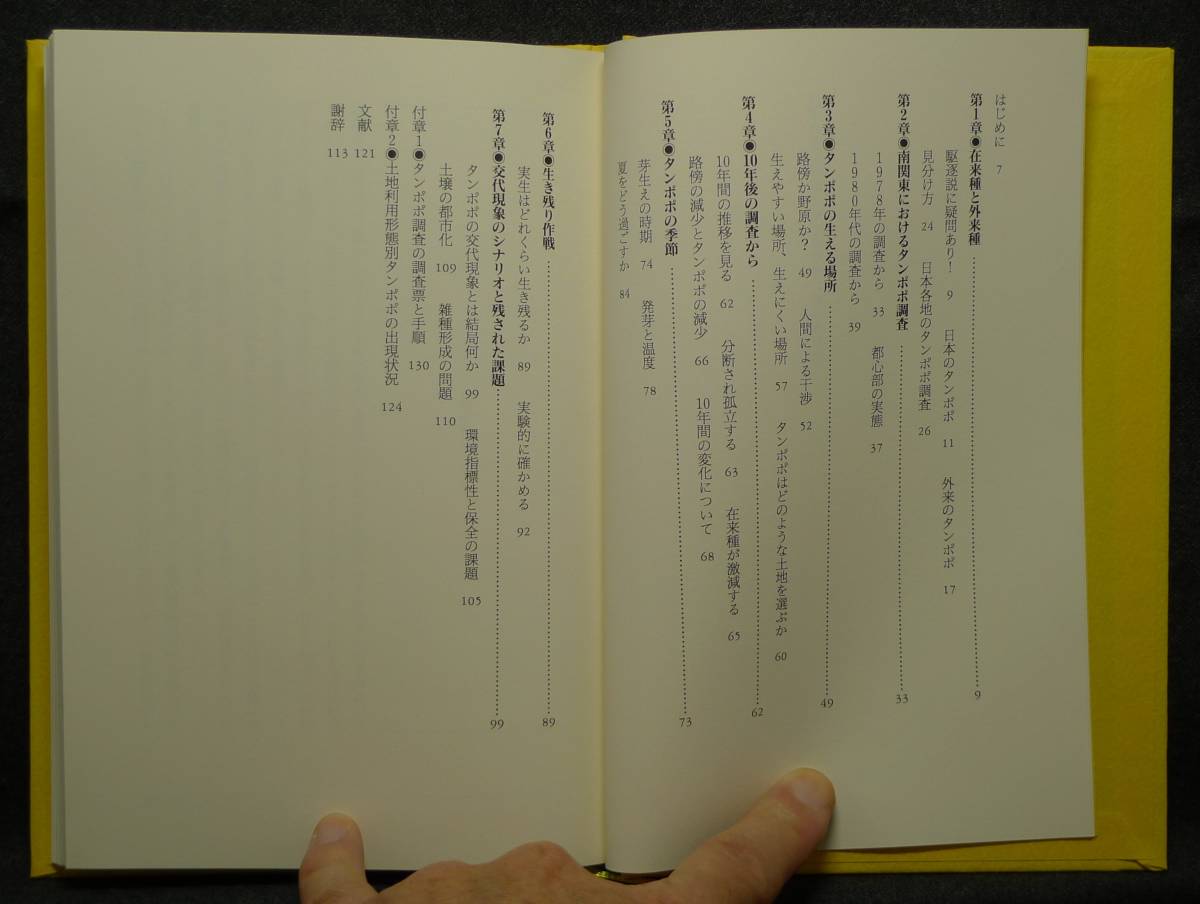 はじめに 7
第1章●在来種と外来種……9
駆逐説に疑問あり! 9 日本のタンポポ 11 外来のタンポポ 17
見分け方 24 日本各地のタンポポ調査 26
第2章●南関東におけるタンポポ調査……33
1978年の調査から 33 都心部の実態 37
1980年代の調査から 39
第3章●タンポポの生える場所……49
路傍か野原か? 49 人間による干渉 52
生えやすい場所、生えにくい場所 57 タンポポはどのような土地を選ぶか 60
第4章●10年後の調査から……62
10年間の推移を見る 62 分断され孤立する 63 在来種が激減する 65
路傍の減少とタンポポの減少 66 10年間の変化について 68
第5章●タンポポの季節……73
芽生えの時期 74 発芽と温度 78
夏をどう過ごすか 84
第6章●生き残り作戦……89
実生はどれくらい生き残るか 89 実験的に確かめる 92
第7章●交代現象のシナリオと残された課題……99
タンポポの交代現象とは結局何か 99 環境指標性と保全の課題 105
土壌の都市化 109 雑種形成の問題 110
付章1●タンポポ調査の調査票と手順 130
付章2●土地利用形態別タンポポの出現状況 124
文献 121
謝辞 113